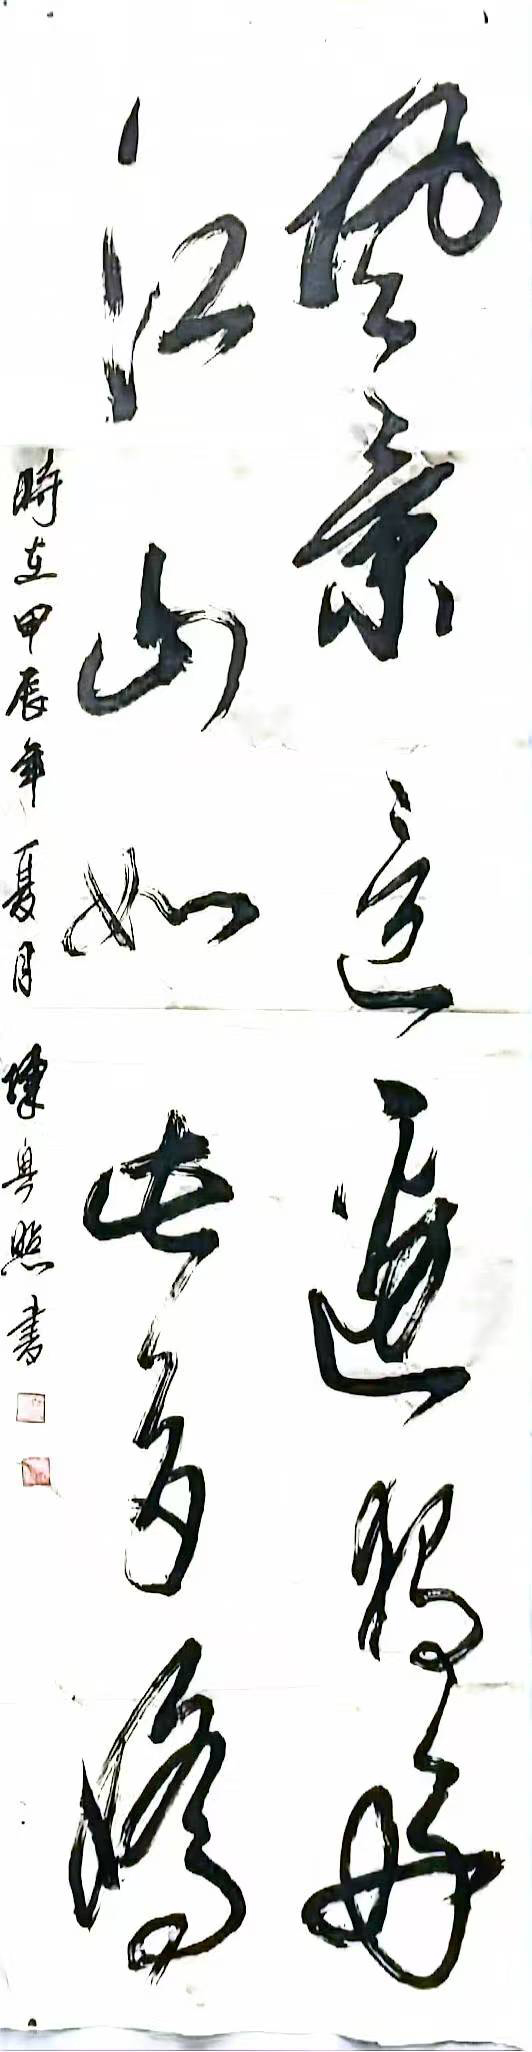 風景這邊獨好
江山如此多嬌
時在甲辰年夏月
陳 照書